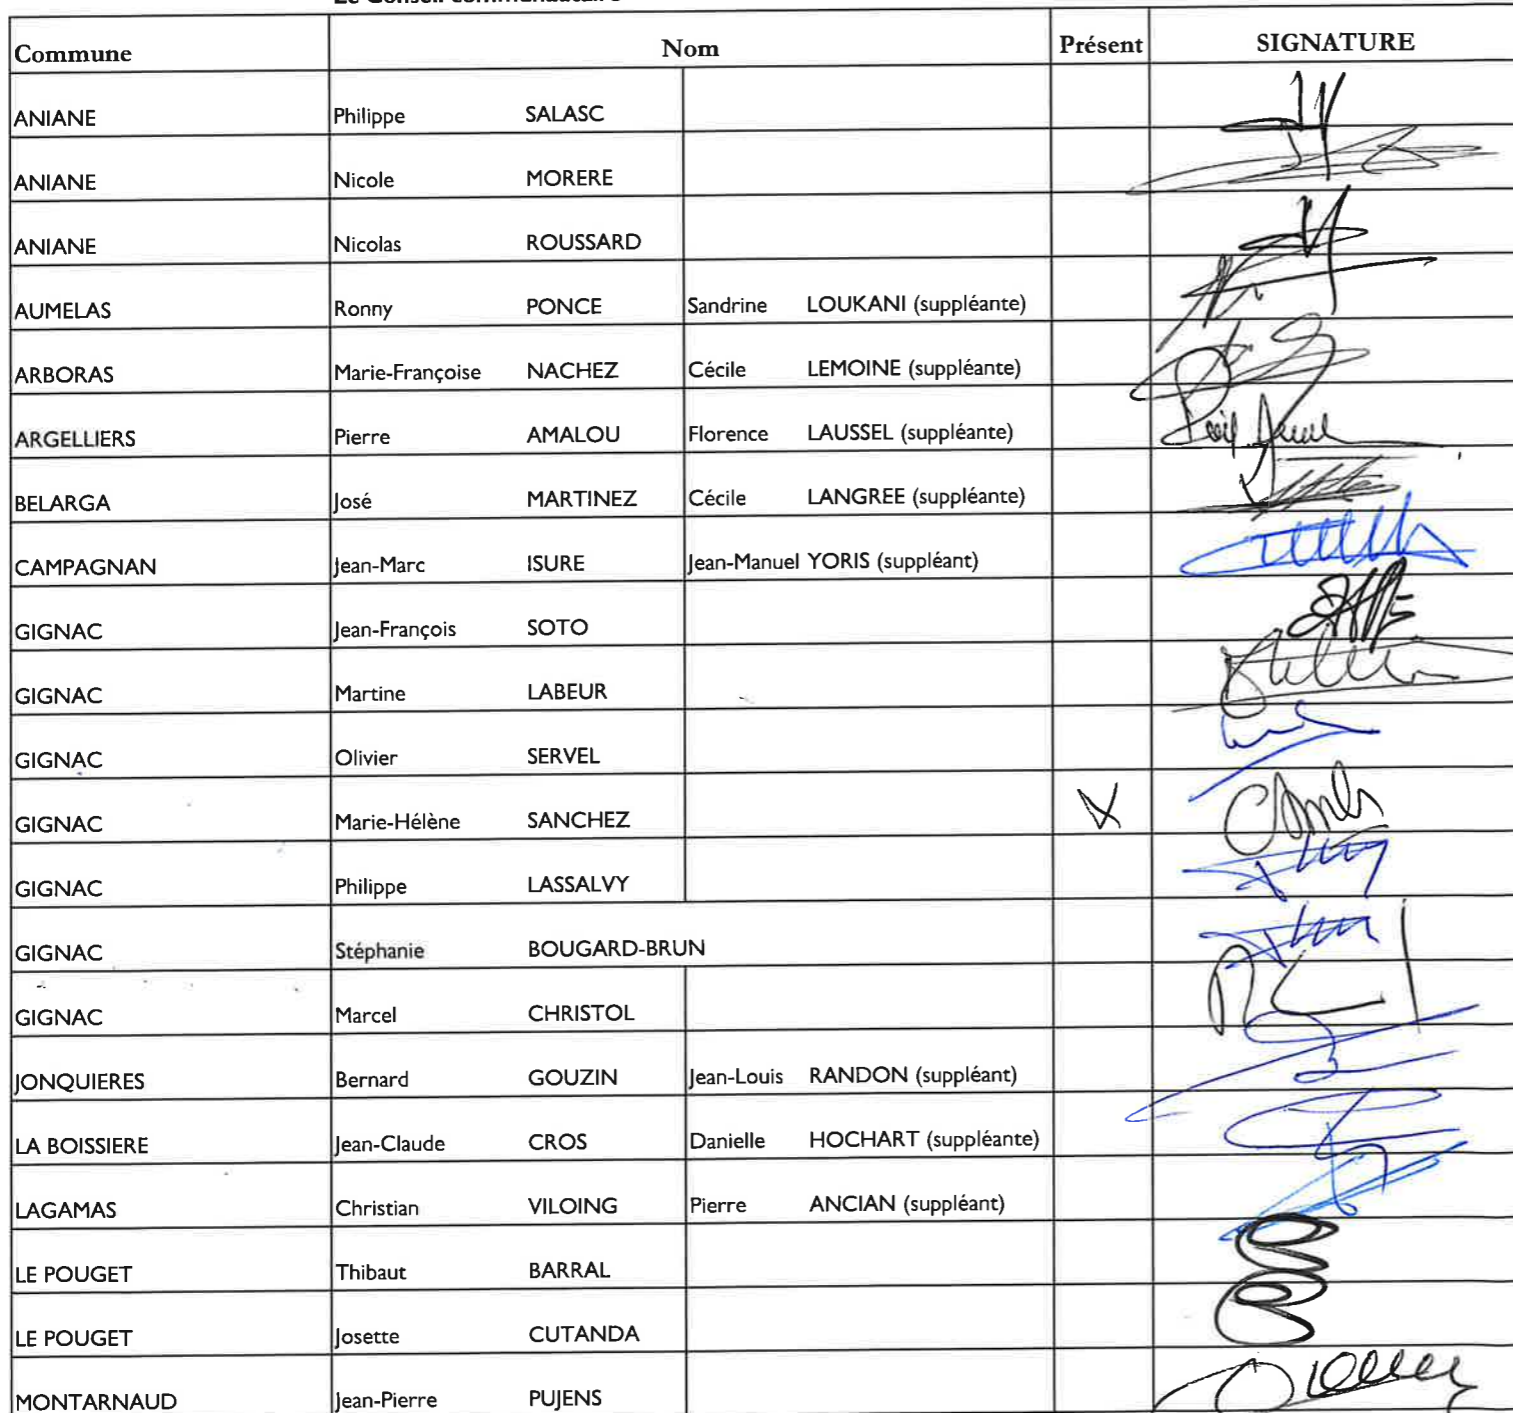 Le Conseil communautaire
Commune Nom Présent SIGNATURE
ANIANE Philippe SALASC
ANIANE Nicole MORERE
ANIANE Nicolas ROUSSARD
AUMELAS Ronny PONCE Sandrine LOUKANI (suppléante)
ARBORAS Marie-Françoise NACHEZ Cécile LEMOINE (suppléante)
ARGELLIERS Pierre AMALOU Florence LAUSSEL (suppléante)
BELARGA José MARTINEZ Cécile LANGREE (suppléante)
CAMPAGNAN Jean-Marc ISURE Jean-Manuel YORIS (suppléant)
GIGNAC Jean-François SOTO
GIGNAC Martine LABEUR
GIGNAC Olivier SERVEL
GIGNAC Marie-Hélène SANCHEZ X
GIGNAC Philippe LASSALVY
GIGNAC Stéphanie BOUGARD-BRUN
GIGNAC Marcel CHRISTOL
JONQUIERES Bernard GOUZIN Jean-Louis RANDON (suppléant)
LA BOISSIERE Jean-Claude CROS Danielle HOCHART (suppléante)
LAGAMAS Christian VILOING Pierre ANCIAN (suppléant)
LE POUGET Thibaut BARRAL
LE POUGET Josette CUTANDA
MONTARNAUD Jean-Pierre PUJENS